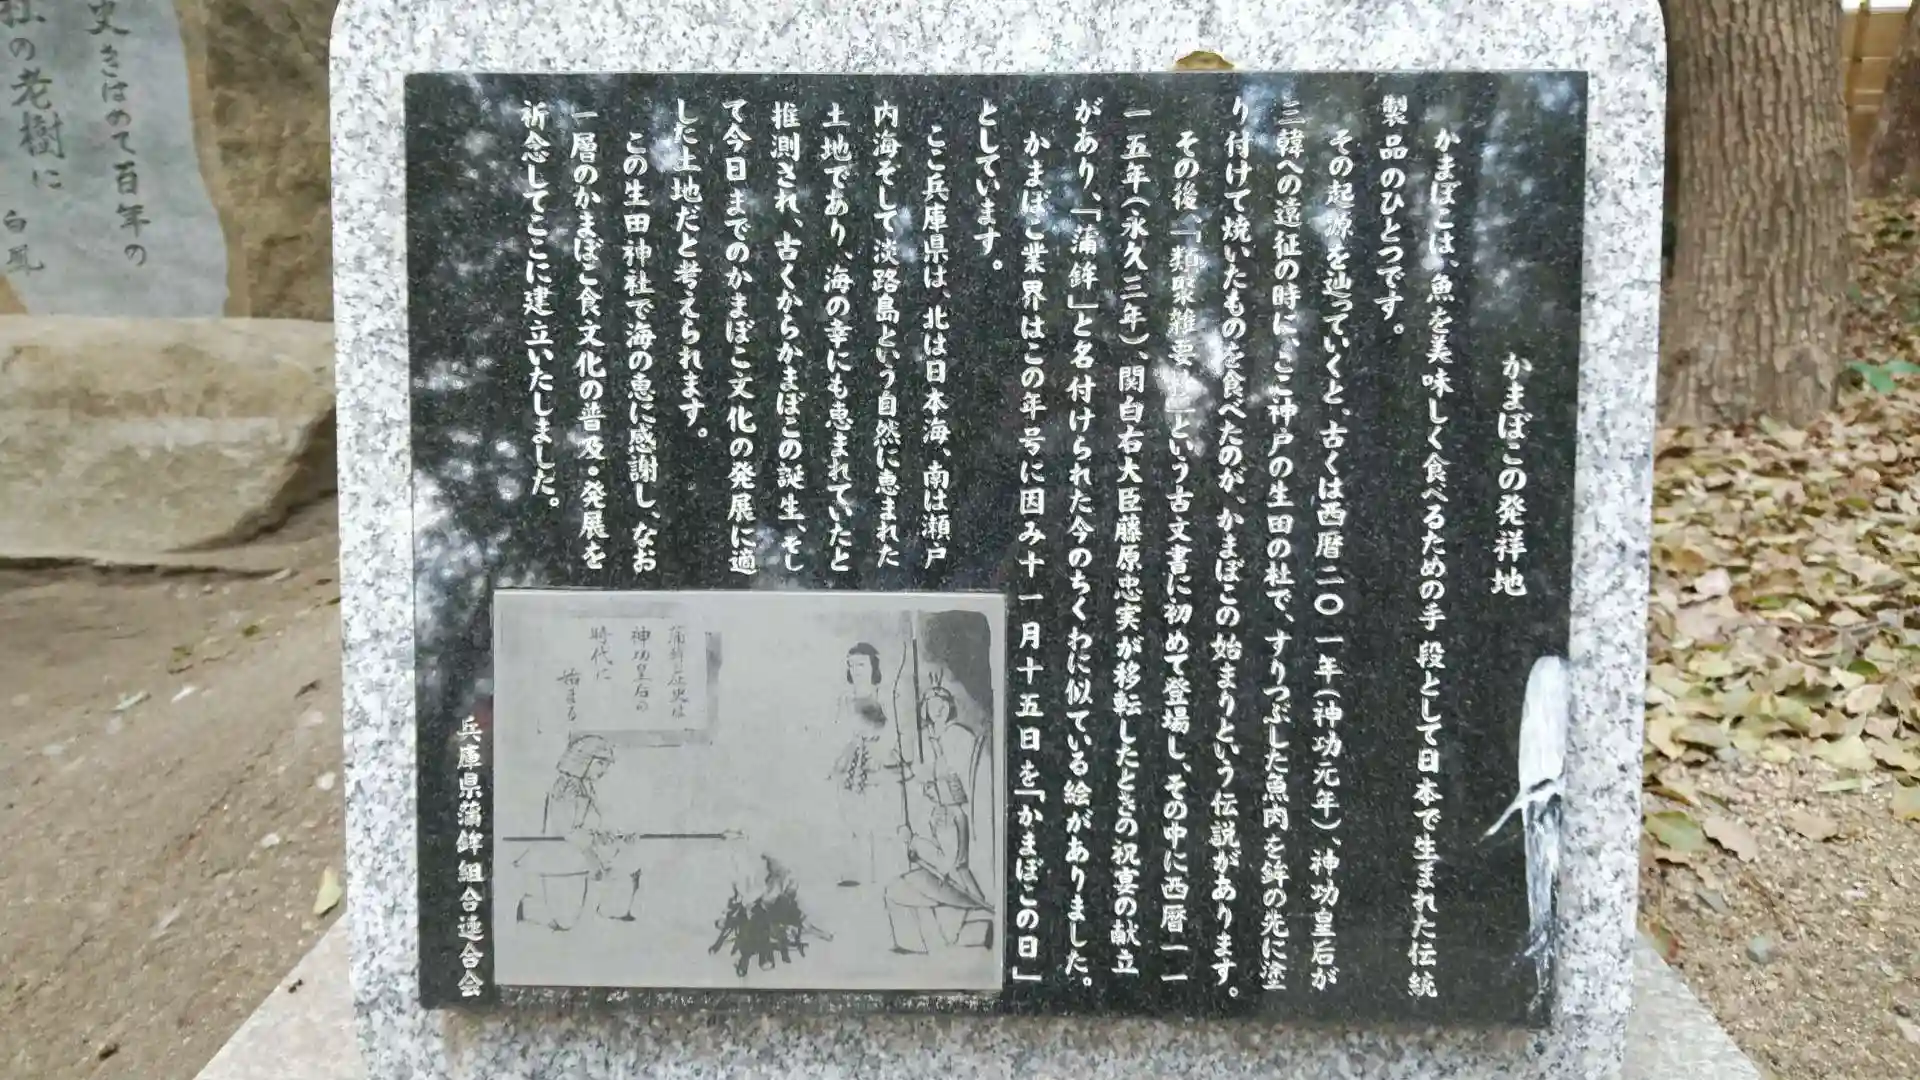 かまぼこの発祥地
かまぼこは、魚を美味しく食べるための手段として日本で生まれた伝統
製品のひとつです。
その起源を辿っていくと、古くは西暦二〇一年(神功元年)、神功皇后が
三韓への遠征の時に、ここ神戸の生田の杜で、すりつぶした魚肉を鉾の先に塗
り付けて焼いたものを食べたのが、かまぼこの始まりという伝説があります。
その後、「類聚雑要抄」という古文書に初めて登場し、その中に西暦一一
一五年(永久三年)、関白右大臣藤原忠実が移転したときの祝宴の献立
があり、「蒲鉾」と名付けられた今のちくわに似ている絵がありました。
かまぼこ業界はこの年号に因み十一月十五日を「かまぼこの日」
としています。
ここ兵庫県は、北は日本海、南は瀬戸
内海そして淡路島という自然に恵まれた
土地であり、海の幸にも恵まれていたと
推測され、古くからかまぼこの誕生、そし
て今日までのかまぼこ文化の発展に適
した土地だと考えられます。
この生田神社で海の恵に感謝し、なお
一層のかまぼこ食文化の普及・発展を
祈念してここに建立いたしました。
兵庫県蒲鉾組合連合会
蒲鉾の歴史は
神功皇后の
時代に
始まる
史きはめて百年の
社の老樹に
白鳳